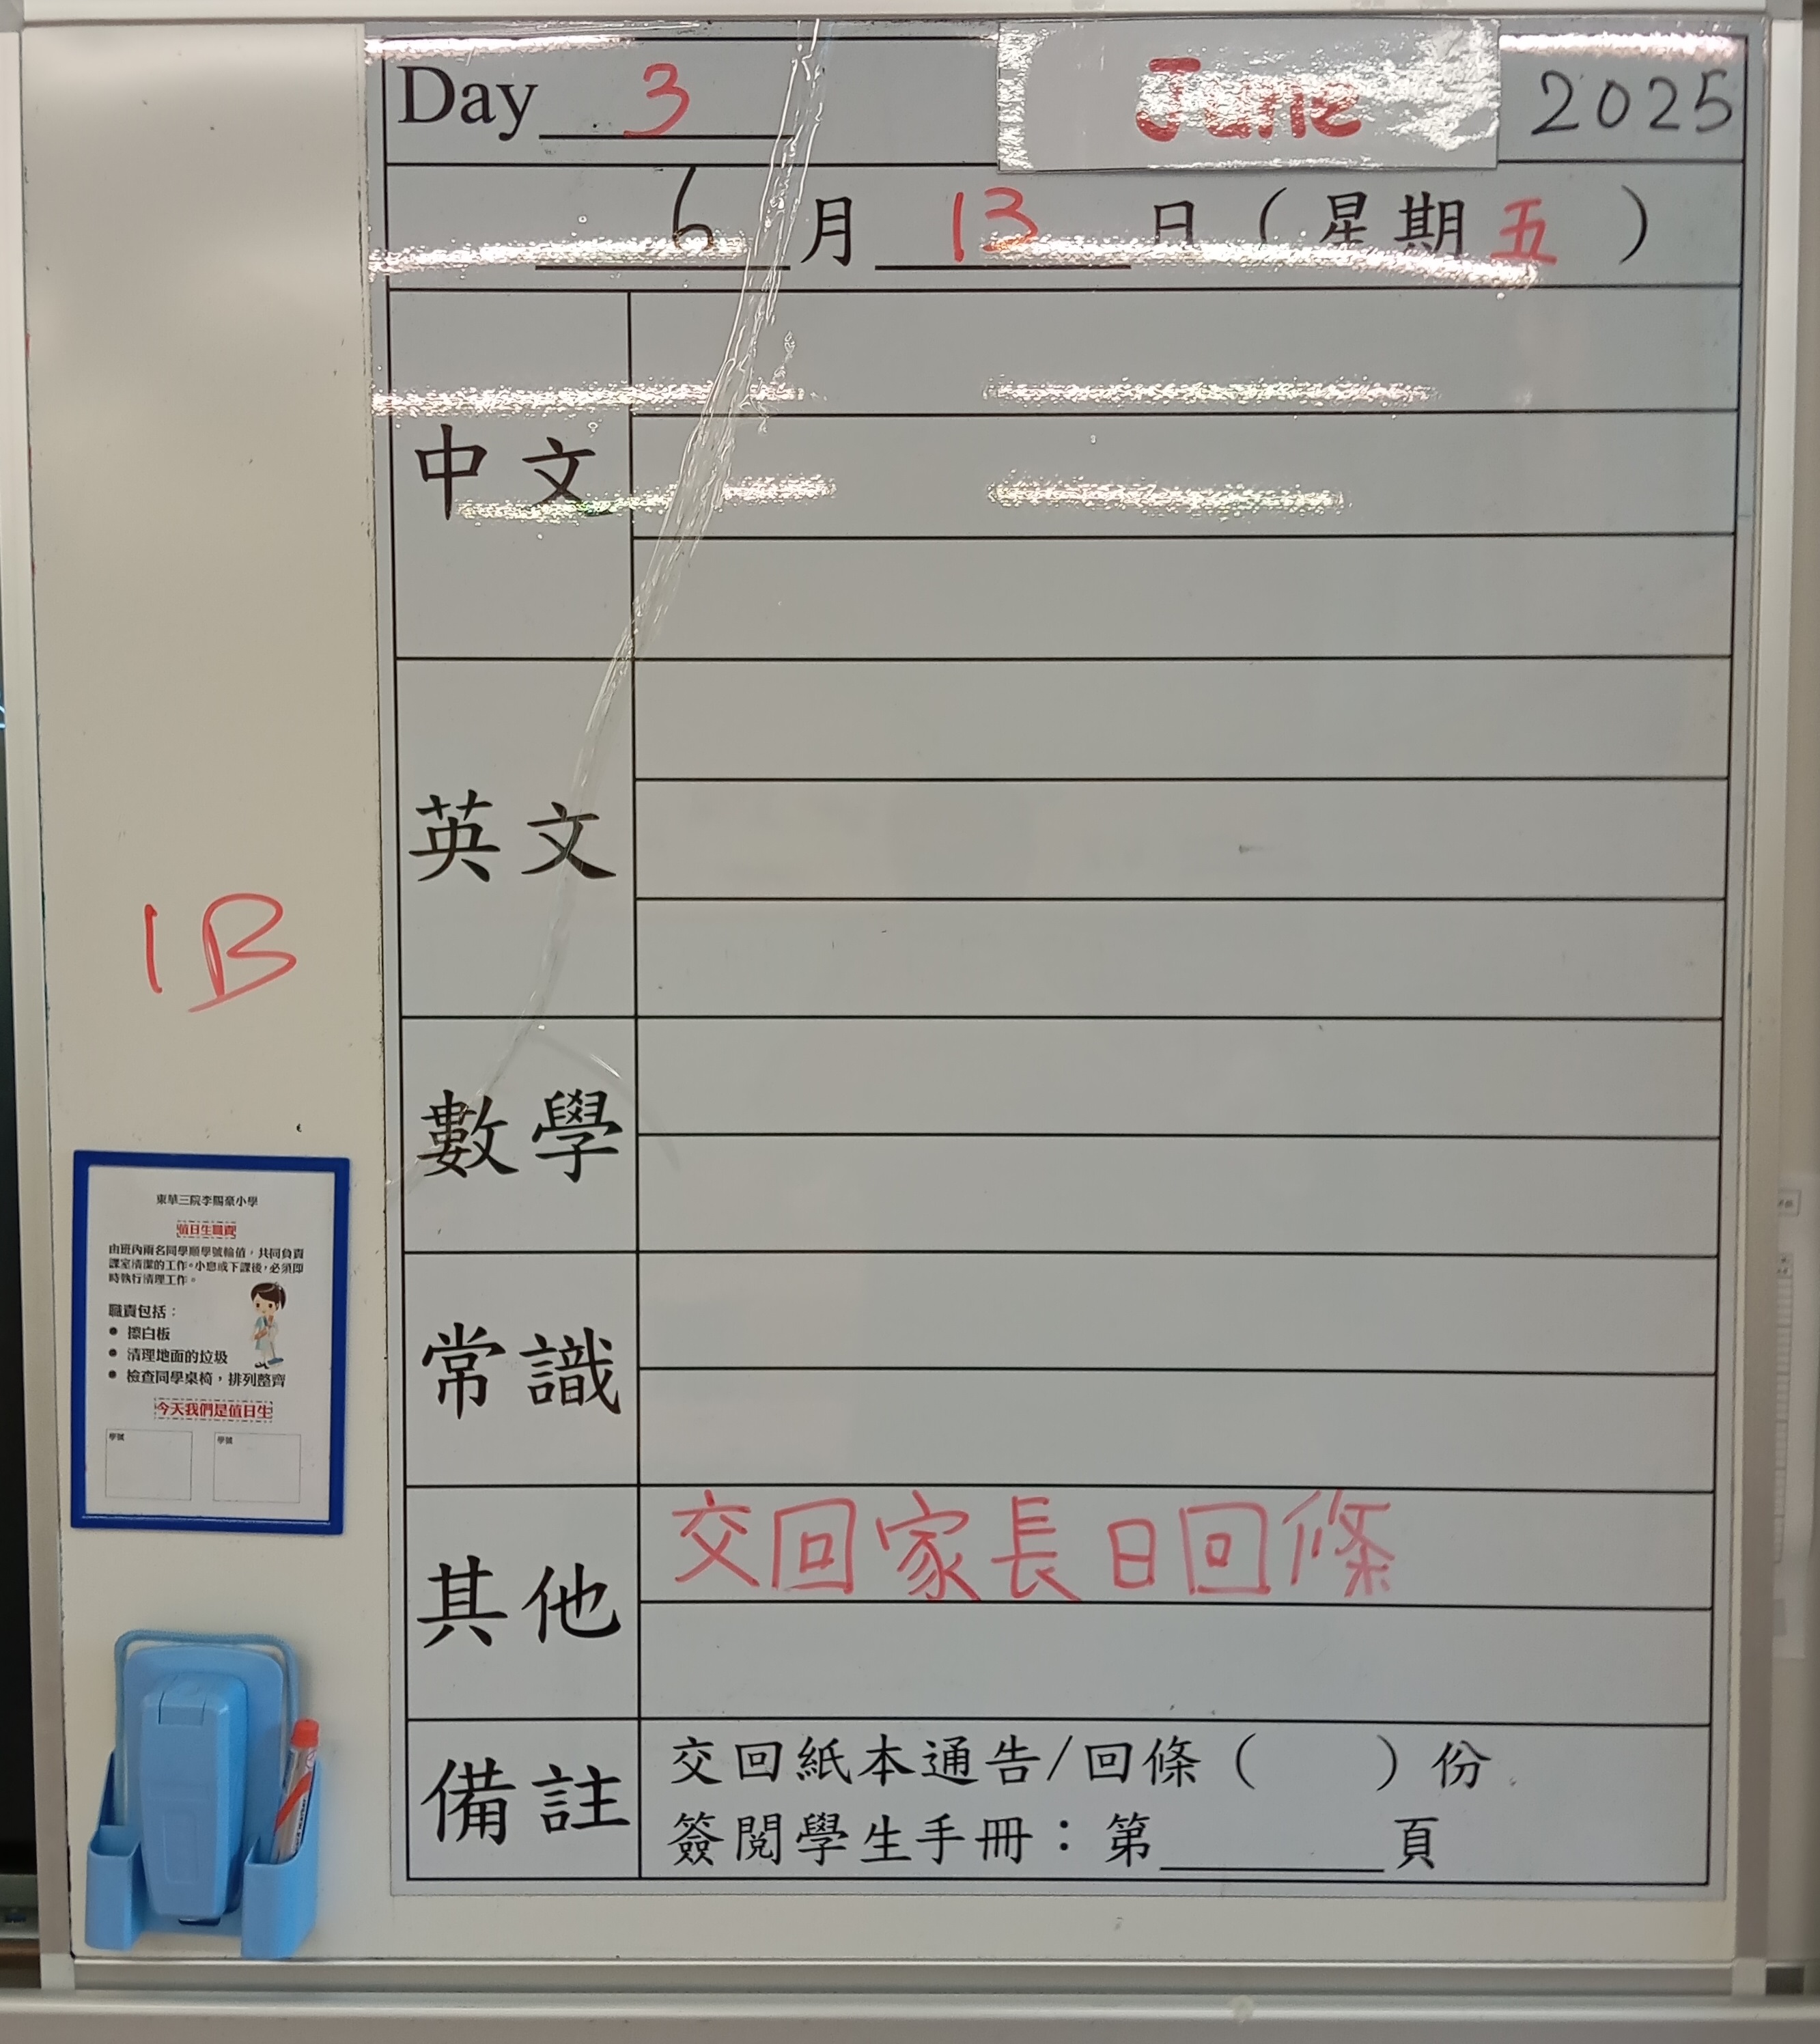 Day 3 June 2025
6月13日（星期五）
中文
英文
1B
數學
常識
其他 交回家長日回條
備註 交回紙本通告/回條（　　）份
簽閱學生手冊：第____頁
東華三院李賜豪小學
值日生職責
由班內兩名同學順學號輪值，共同負責
課室清潔的工作。小息或下課後，必須即
時執行清理工作。
職責包括：
● 擦白板
● 清理地面的垃圾
● 檢查同學桌椅，排列整齊
今天我們是值日生
學號 學號